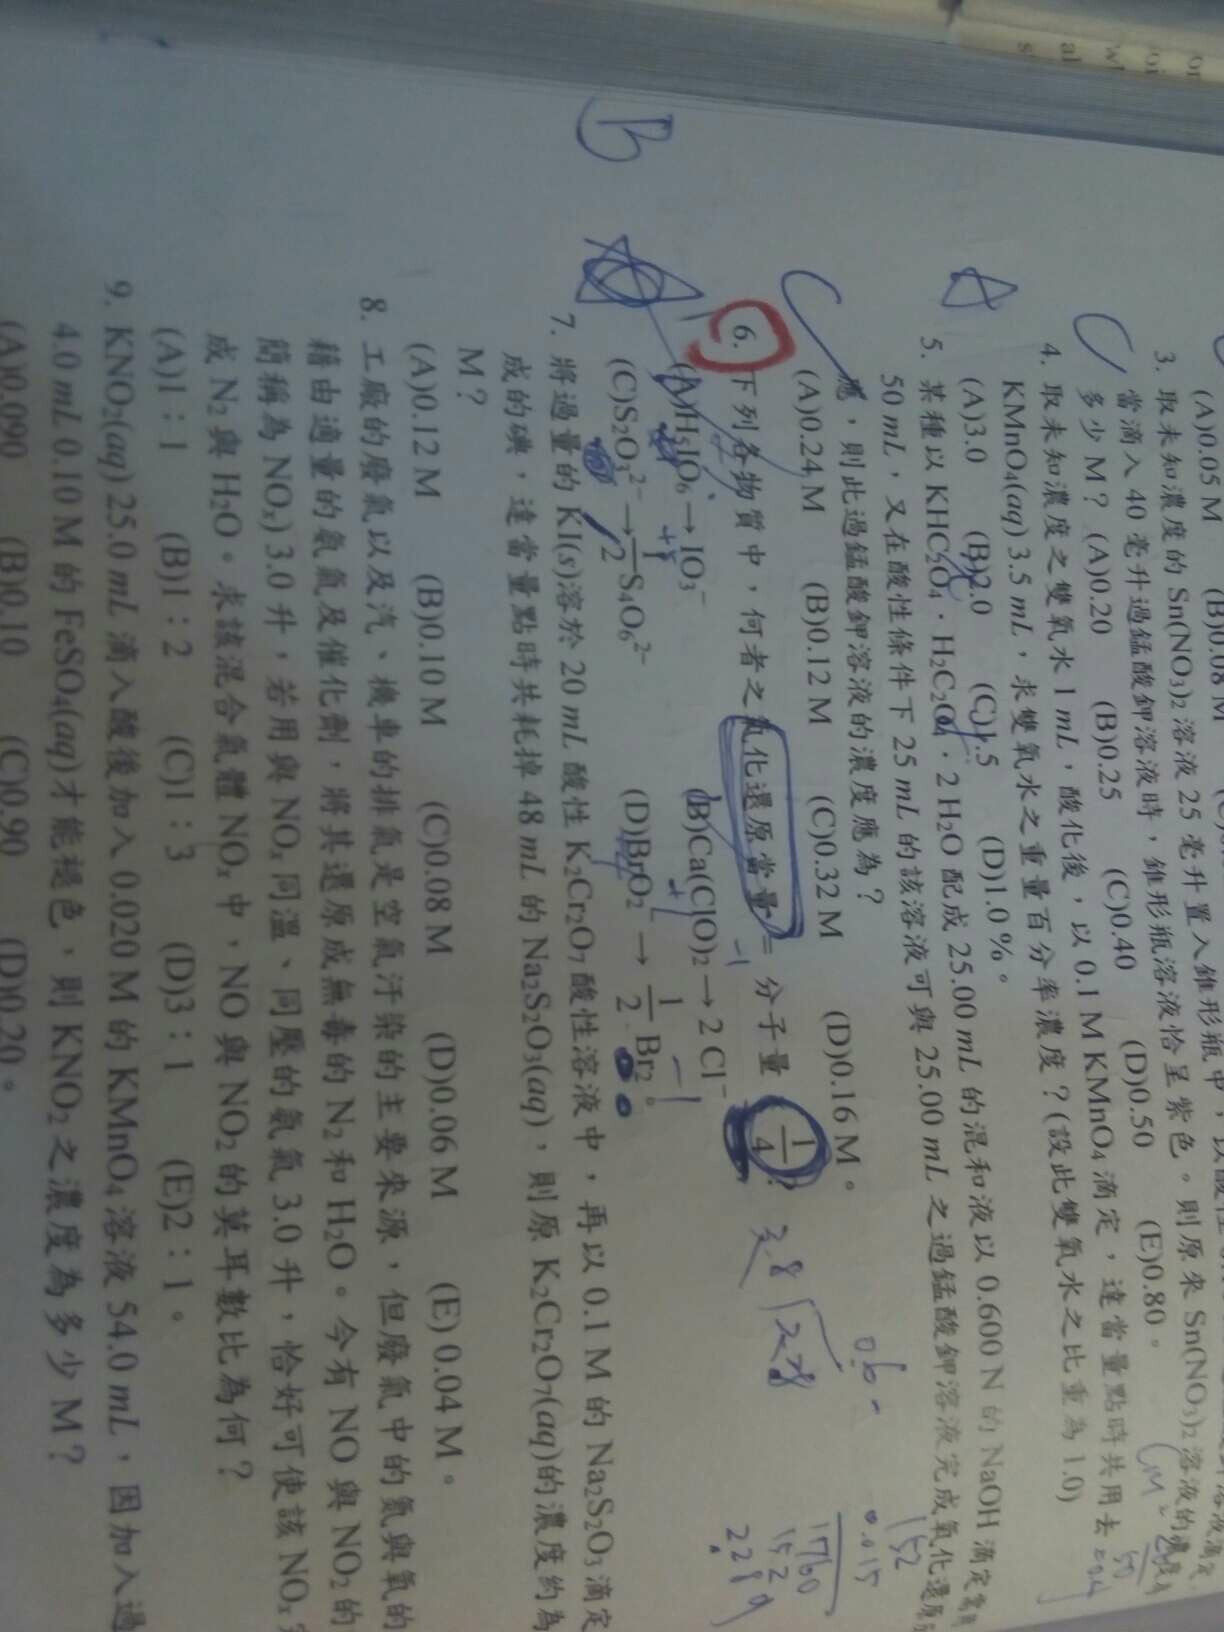 (A)0.05 M (B)0.08 M
3. 取未知濃度的 Sn(NO3)2 溶液 25 毫升置入錐形瓶中,以酸性
當滴入 40 毫升過錳酸鉀溶液時,錐形瓶溶液恰呈紫色。則原來 Sn(NO3)2 溶液的濃度為
多少 M? (A)0.20 (B)0.25 (C)0.40 (D)0.50 (E)0.80。
4. 取未知濃度之雙氧水 1 mL,酸化後,以 0.1 M KMnO4 滴定,達當量點時共用去
KMnO4(aq) 3.5 mL,求雙氧水之重量百分率濃度?(設此雙氧水之比重為 1.0)
(A)3.0 (B)2.0 (C)1.5 (D)1.0 %。
5. 某種以 KHC2O4.H2C2O4.2 H2O 配成 25.00 mL 的混和液以 0.600 N 的 NaOH 滴定需
50 mL,又在酸性條件下 25 mL 的該溶液可與 25.00 mL 之過錳酸鉀溶液完成氧化還原反
應,則此過錳酸鉀溶液的濃度應為?
(A)0.24 M (B)0.12 M (C)0.32 M (D)0.16 M。
6. 下列各物質中,何者之氧化還原當量= 分子量 1/4?
(A)H5IO6→IO3− (B)Ca(ClO)2→2 Cl−
(C)S2O3 2−→1/2 S4O6 2− (D)BrO2−→1/2 Br2。
7. 將過量的 KI(s)溶於 20 mL 酸性 K2Cr2O7 酸性溶液中,再以 0.1 M 的 Na2S2O3 滴定
成的碘,達當量點時共耗掉 48 mL 的 Na2S2O3(aq),則原 K2Cr2O7(aq)的的濃度約為
M?
(A)0.12 M (B)0.10 M (C)0.08 M (D)0.06 M (E) 0.04 M。
8. 工廠的廢氣以及汽、機車的排氣是空氣汙染的主要來源,但廢氣中的氮與氧的
藉由適量的氨氣及催化劑,將其還原成無毒的 N2 和 H2O。今有 NO 與 NO2 的
簡稱為 NOx) 3.0 升,若用與 NOx 同溫、同壓的氨氣 3.0 升,恰好可使該 NOx
成 N2 與 H2O。求該混合氣體 NOx 中,NO 與 NO2 的莫耳數比為何?
(A)1:1 (B)1:2 (C)1:3 (D)3:1 (E)2:1。
9. KNO2(aq) 25.0 mL 滴入酸後加入 0.020 M 的 KMnO4 溶液 54.0 mL,因加入過
4.0 mL 0.10 M 的 FeSO4(aq)才能褪色,則 KNO2 之濃度為多少 M?
(A)0.090 (B)0.10 (C)0.90 (D)0.20。
B
+1
−1
152
0.015
1760
152